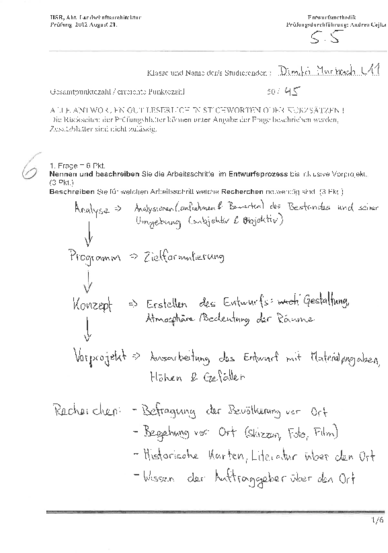 HSR, Abt. Landschaftsarchitektur
Entwurfsmethodik
Prüfung 2012 August 21.
Prüfungsdurchführung: Andrea Cejka
5.5
Klasse und Name der/s Studierenden: Dimitri Marbach L11
Gesamtpunktezahl / erreichte Punktezahl 50 / 45
ALLE ANTWORTEN GUT LESERLICH IN STICHWORTEN ODER KURZSÄTZEN !
Die Rückseiten der Prüfungsblätter können unter Angabe der Frage beschrieben werden,
Zusatzblätter sind nicht zulässig.
6
1. Frage = 6 Pkt.
Nennen und beschreiben Sie die Arbeitsschritte im Entwurfsprozess bis inklusive Vorprojekt.
(3 Pkt.)
Beschreiben Sie für welchen Arbeitsschritt welche Recherchen notwendig sind. (3 Pkt.)
Analyse => Analysieren (aufnehmen & Bewerten) des Bestandes und seiner
Umgebung (subjektiv & objektiv)
Programm => Zielformulierung
Konzept => Erstellen des Entwurfs: Gestaltung,
Atmosphäre / Bedeutung der Räume
Vorprojekt => Ausarbeitung des Entwurf mit Materialangaben,
Höhen & Gefäller
Recherchen: - Befragung der Bevölkerung vor Ort
- Begehung vor Ort (Skizzen, Foto, Film)
- Historische Karten, Literatur über den Ort
- Wissen der Auftraggeber über den Ort
1/6